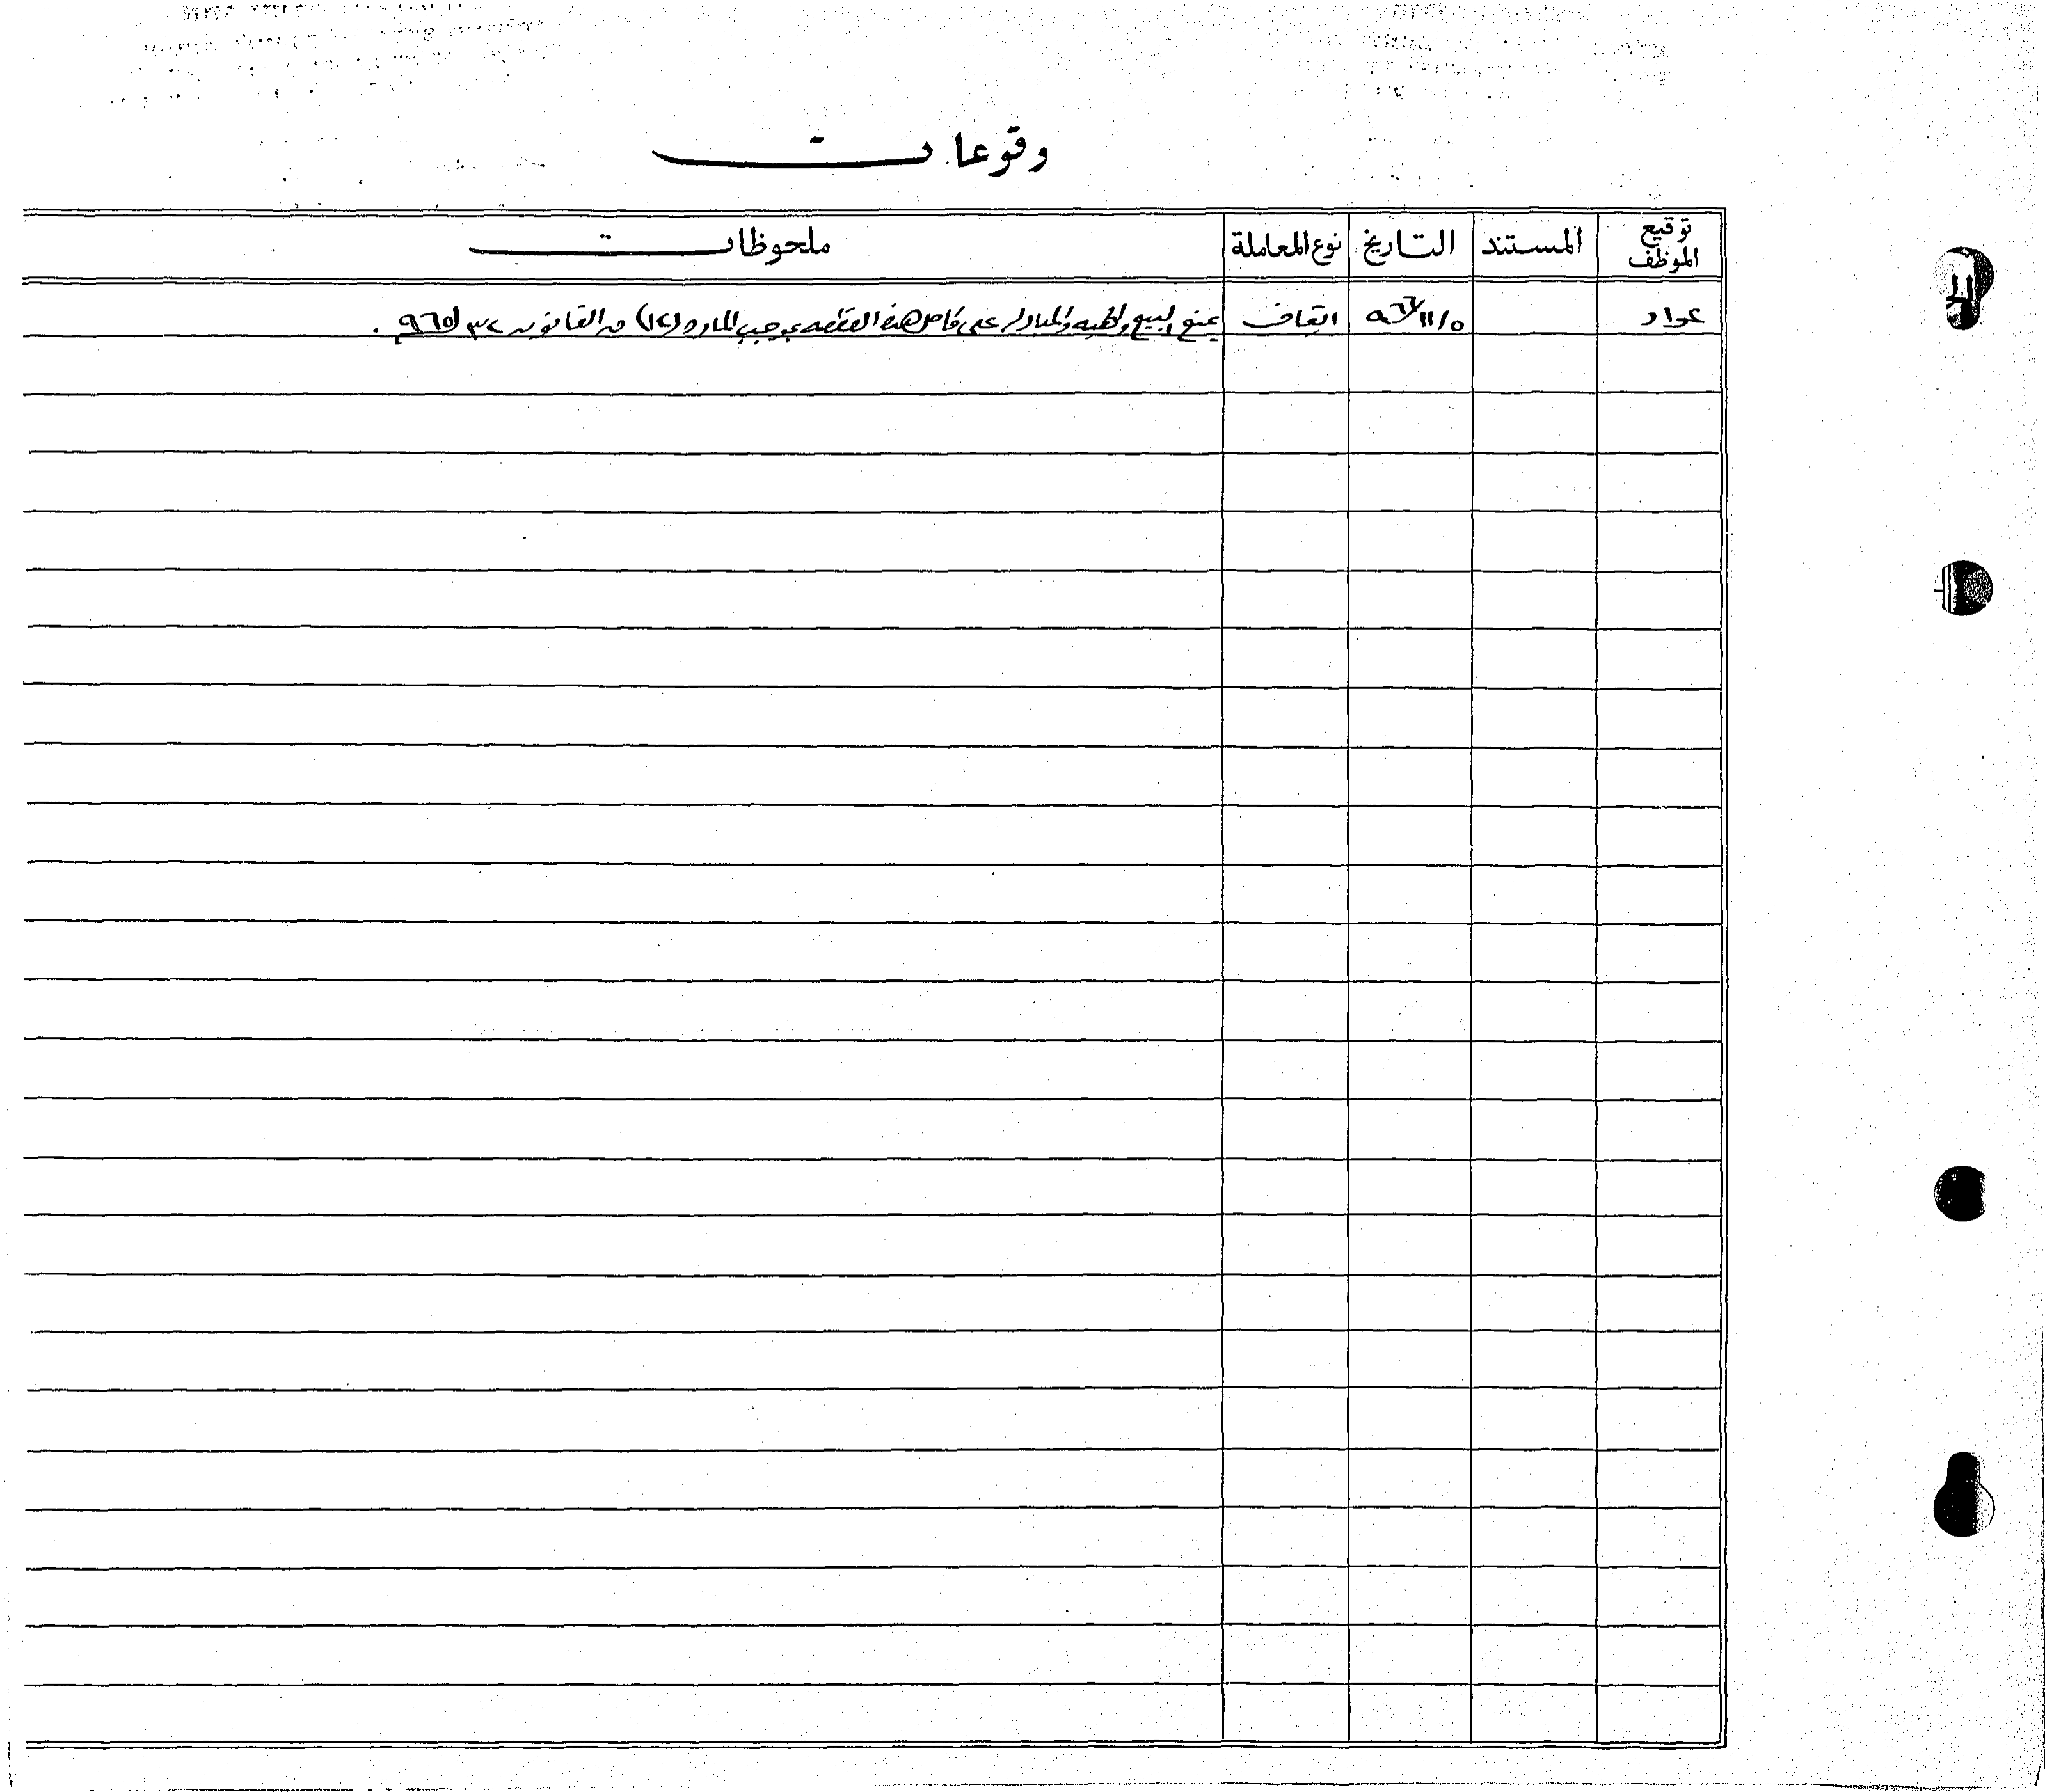 وقوعات
توقيع الموظف | المستند | التاريخ | نوع المعاملة | ملحوظات
عواد | ٩٦٧/١١/٥ | ايقاف | يمنع البيع والهبه والمبادله على كامل هذه القطعه بموجب الماده (١٢) من القانون ٣٢ / ٩٦٥ .